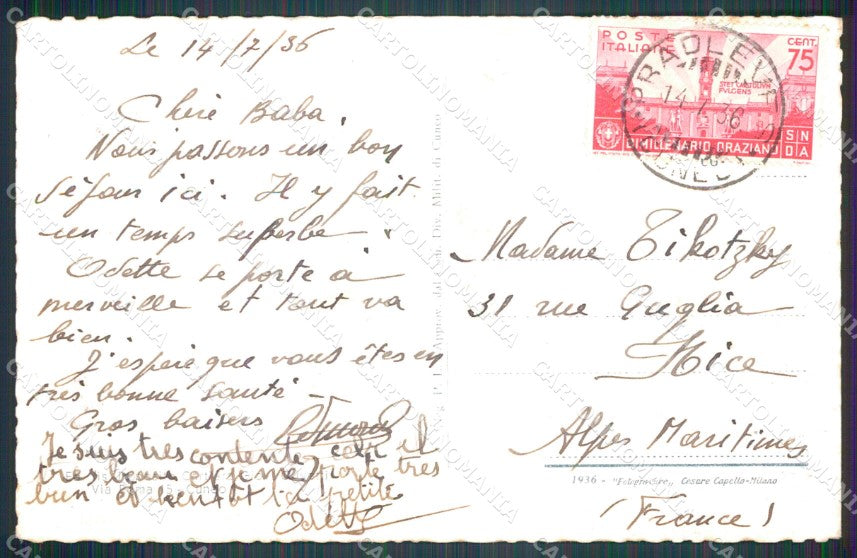 Le 14/7/36
Chère Baba,
Nous passons un bon
séjour ici. Il y fait
un temps superbe.
Odette se porte à
merveille et tout va
bien.
J'espère que vous êtes en
très bonne santé -
Gros baisers
Je suis tres contente, c'est
tres beau et je me porte tres
bien et bientôt la petite
Odette
POSTE
ITALIANE
CENT.
75
STET CAPITOLIUM
FULGENS
BIMILLENARIO ORAZIANO
S N
D A
PRADLEVES
14.7.36
(CUNEO)
Madame Tikotzky
31 rue Guglia
Nice
Alpes Maritimes
(France)
1936 - "Fotogravure" Cesare Capello-Milano
CARTOLINOMANIA